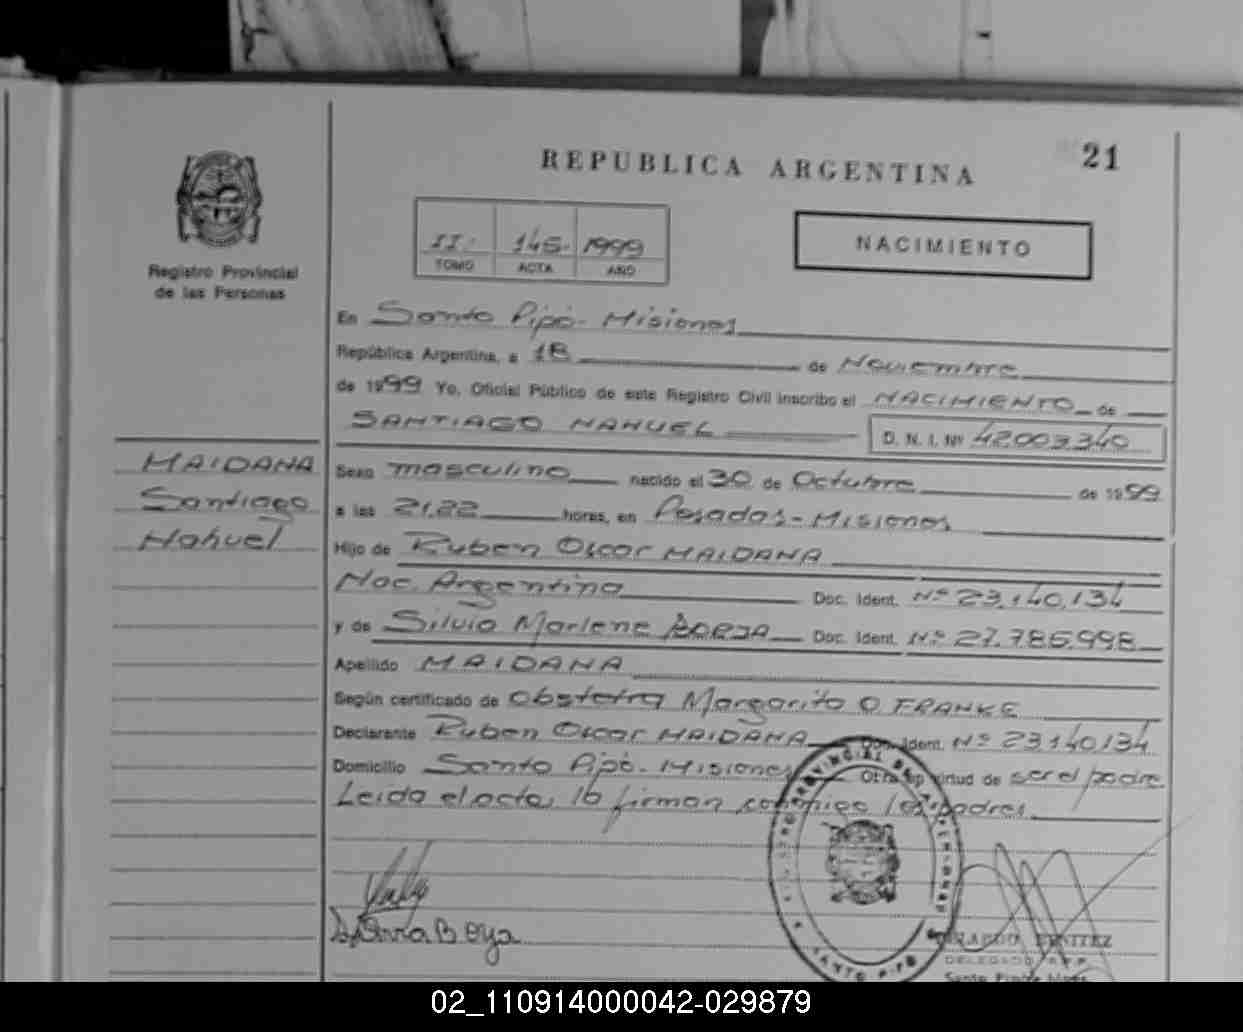 21
REPUBLICA ARGENTINA
II 145 1999
TOMO ACTA AÑO
NACIMIENTO
Registro Provincial
de las Personas
En Santo Pipó - Misiones
República Argentina, a 18 de Noviembre
de 1999 Yo, Oficial Público de este Registro Civil inscribo el NACIMIENTO de
SANTIAGO NAHUEL D. N. I. Nº 42.003.340
MAIDANA
Santiago
Nahuel
Sexo masculino nacido el 30 de Octubre de 1999
a las 21,22 horas, en Posadas - Misiones
Hijo de Ruben Oscar MAIDANA
Nac. Argentina Doc. Ident. Nº 23.140.134
y de Silvia Marlene BORJA Doc. Ident. Nº 27.786.998
Apellido MAIDANA
Según certificado de obstetra Margarita O. FRANKE
Declarante Ruben Oscar MAIDANA Doc. Ident. Nº 23.140.134
Domicilio Santo Pipó - Misiones Obra en virtud de ser el padre
Leída el acta, la firman conmigo los padres.
SANTO PIPO
BENITEZ
DELEGADO R.P.P.
02_110914000042-029879